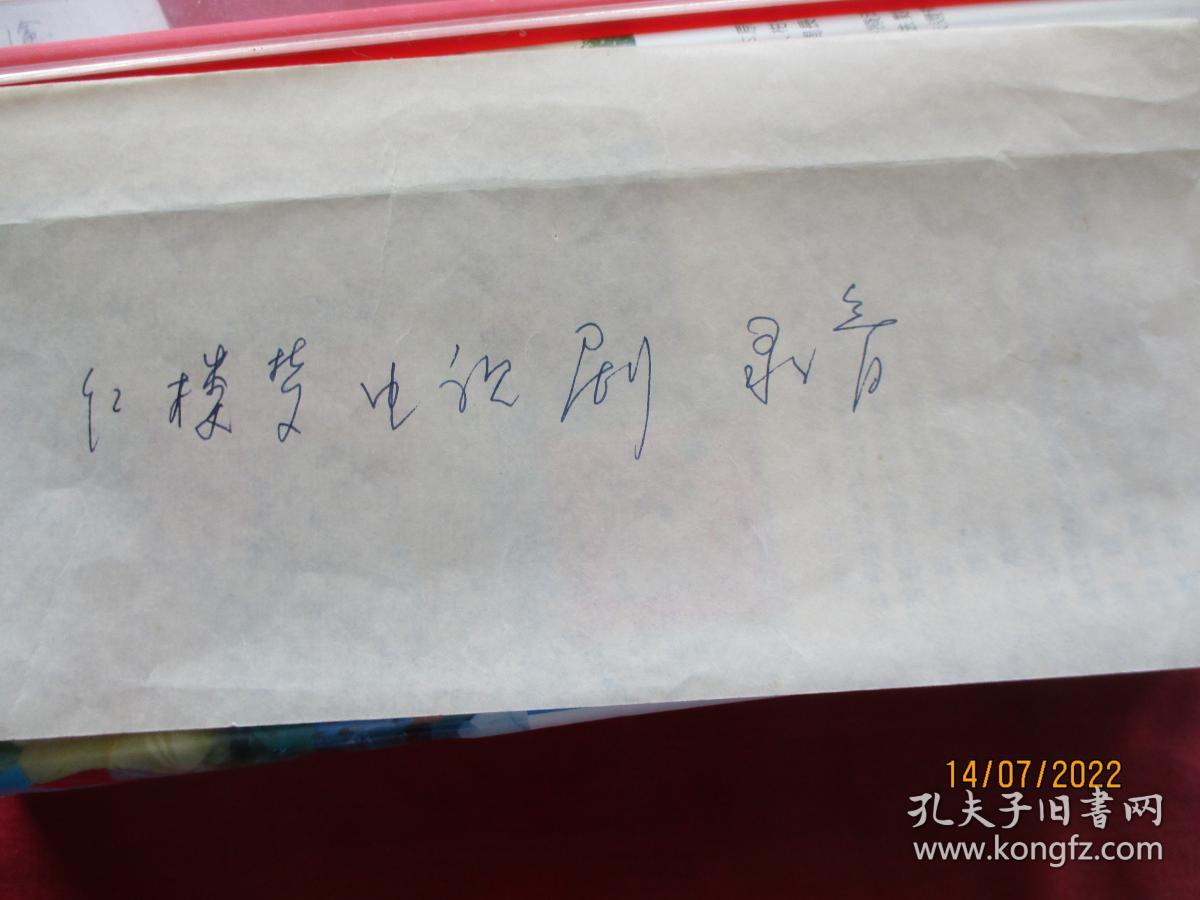 红楼梦电视剧 录音
14/07/2022
孔夫子旧書网
www.kongfz.com